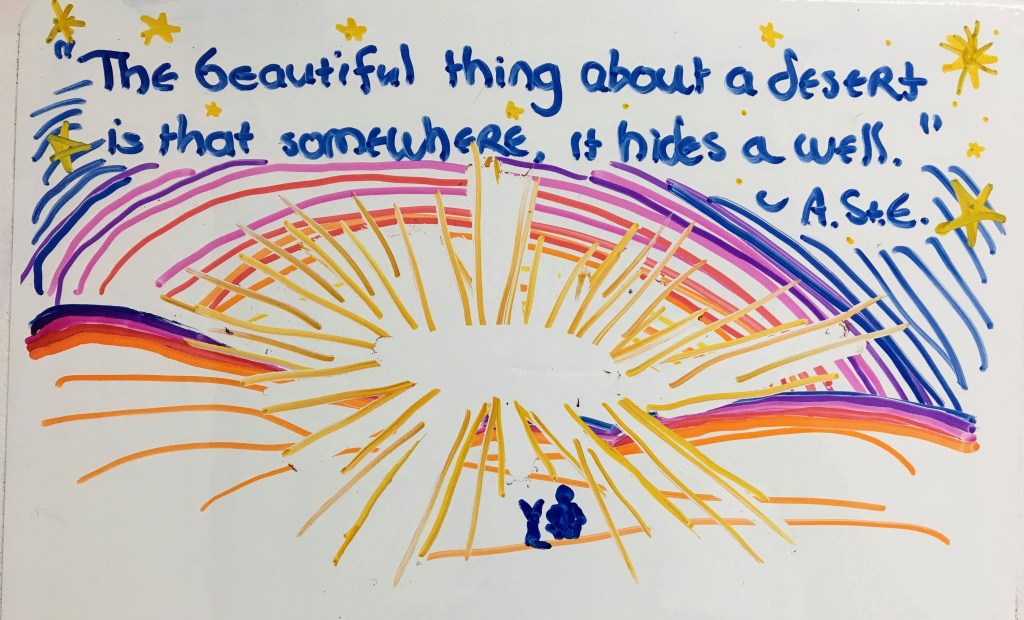 "The beautiful thing about a desert
is that somewhere, it hides a well."
~ A. St. E.